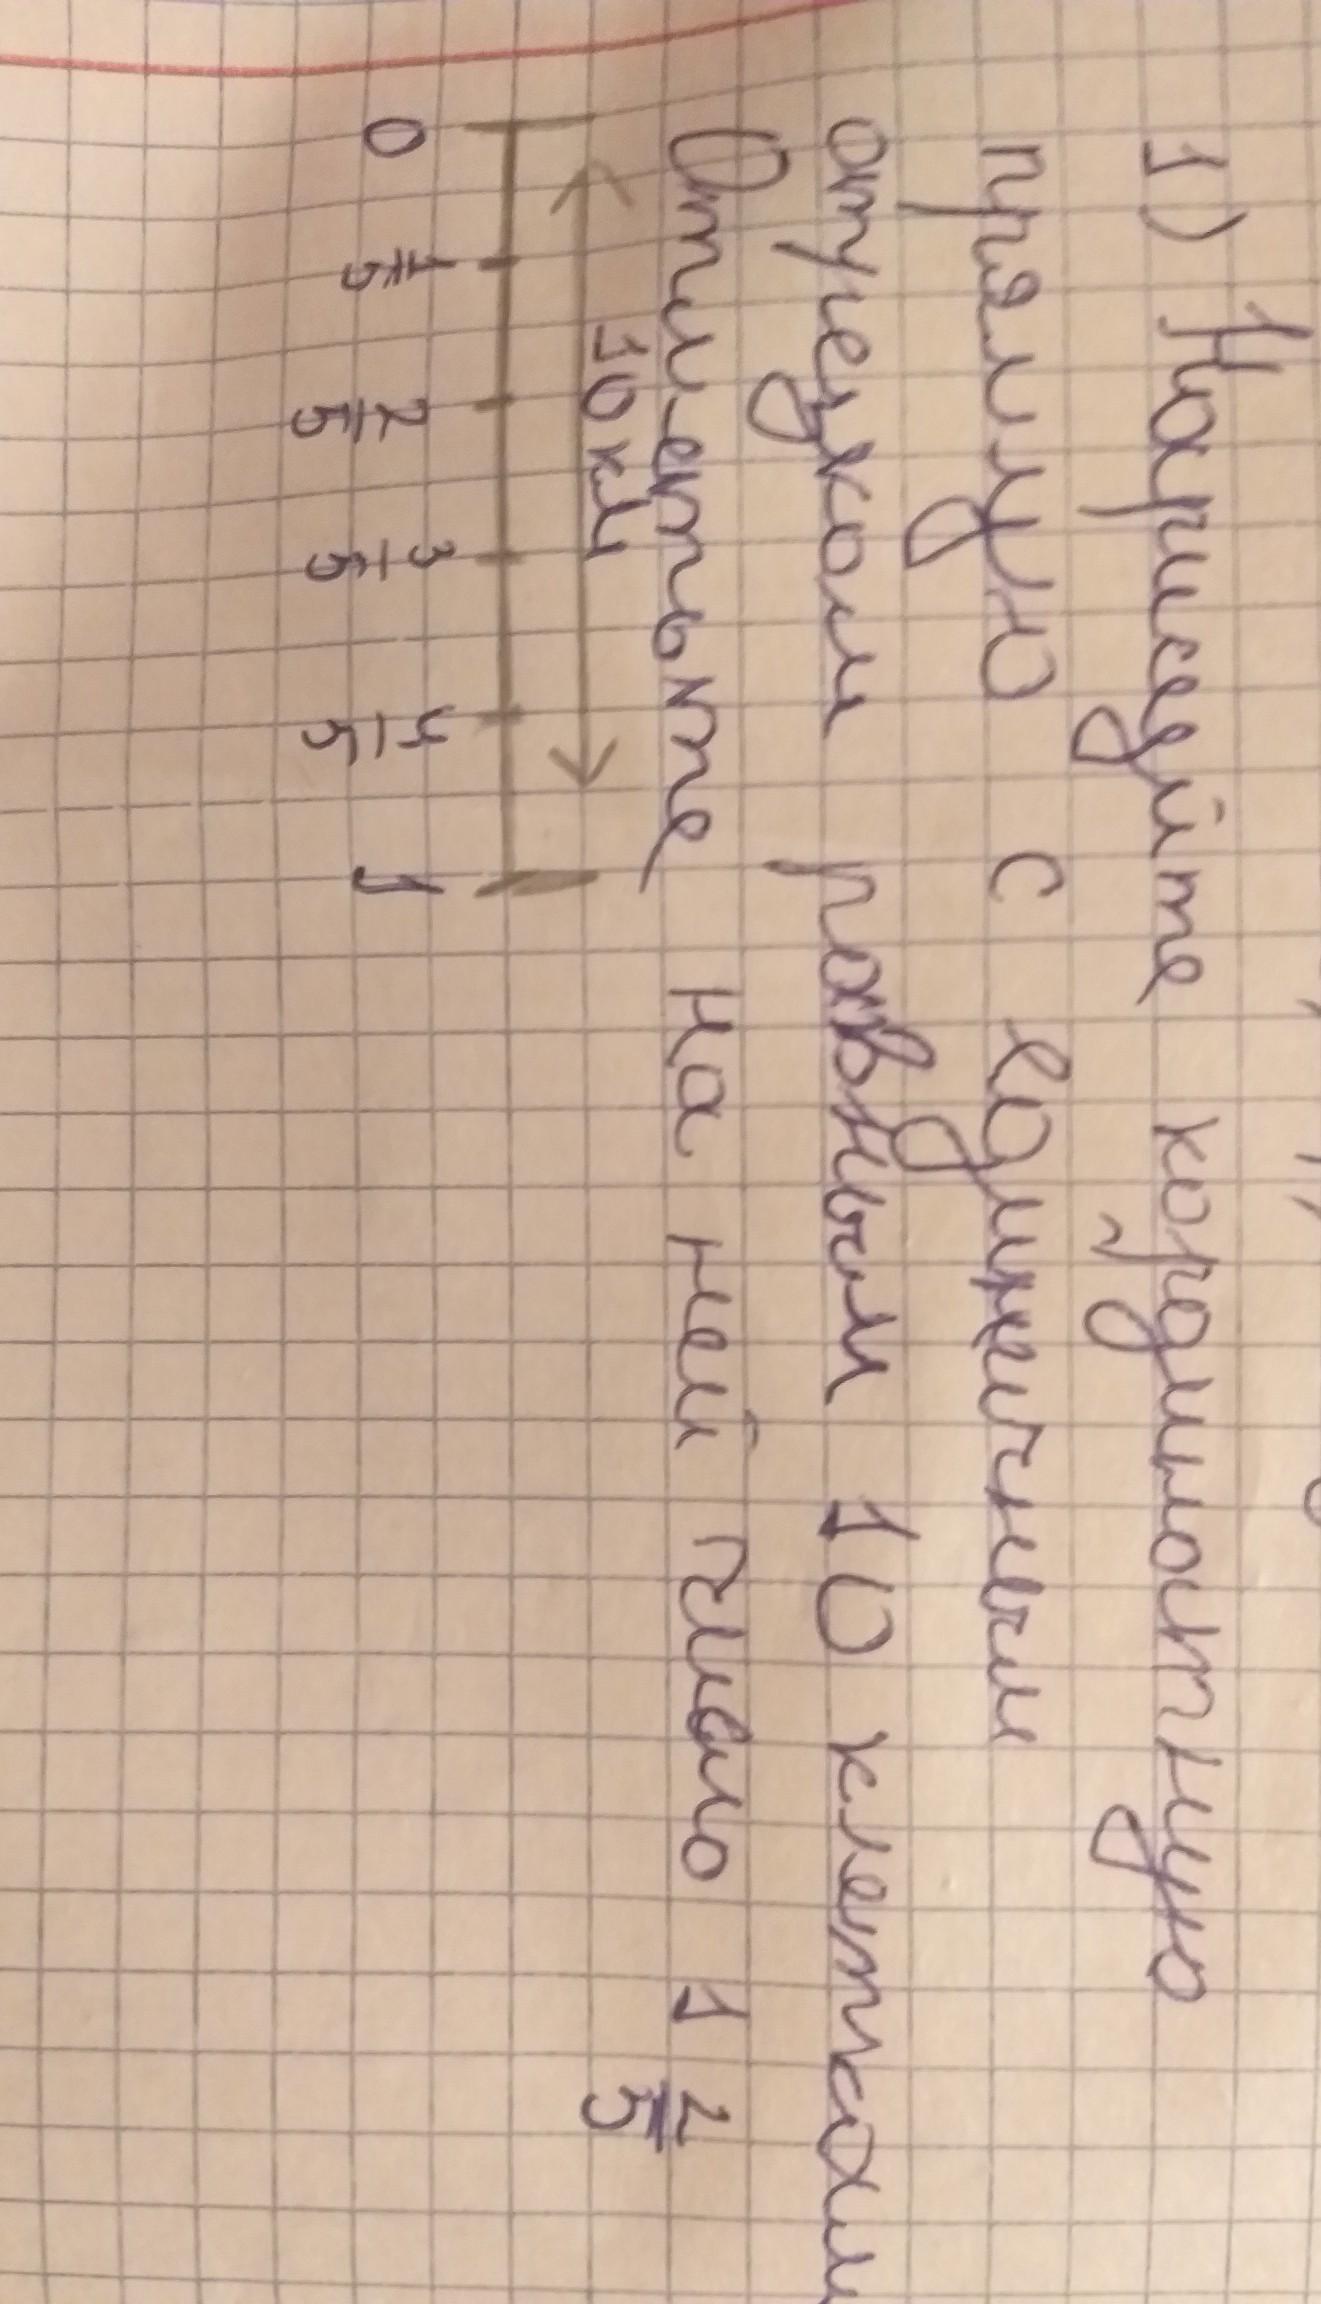 1) Нарисуйте кординатную
прямую с единичным
отрезком равным 10 клеткам
Отметьте на ней число 1 2/5
10 кл
0 1/5 2/5 3/5 4/5 1